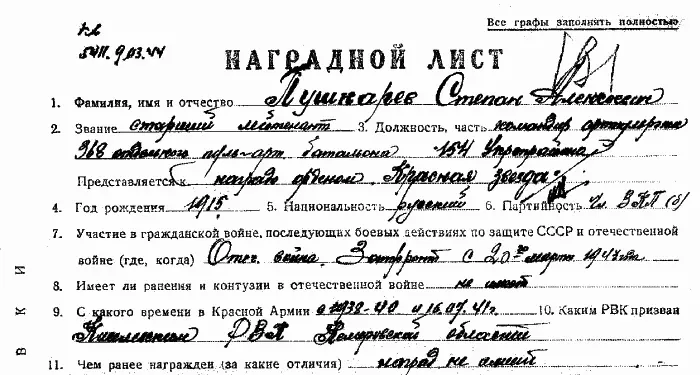 Все графы заполнять полностью
5411. 9.03.44
НАГРАДНОЙ ЛИСТ
1. Фамилия, имя и отчество Пушкарев Степан
2. Звание старший лейтенант 3. Должность, часть командир
368 отдельного пульарт. батальона 154 Укрепрайона
Представляется к награде орденом „Красная звезда"
4. Год рождения 1915 5. Национальность русский 6. Партийность
7. Участие в гражданской войне, последующих боевых действиях по защите СССР и отечественной
войне (где, когда) Отеч. война. Запфронт с 20го марта 1943 года
8. Имеет ли ранения и контузии в отечественной войне не имеет
9. С какого времени в Красной Армии с 1938-40 и 16.07.41г. 10. Каким РВК призван
РВК области
11. Чем ранее награжден (за какие отличия) наград не имеет
ВКИ